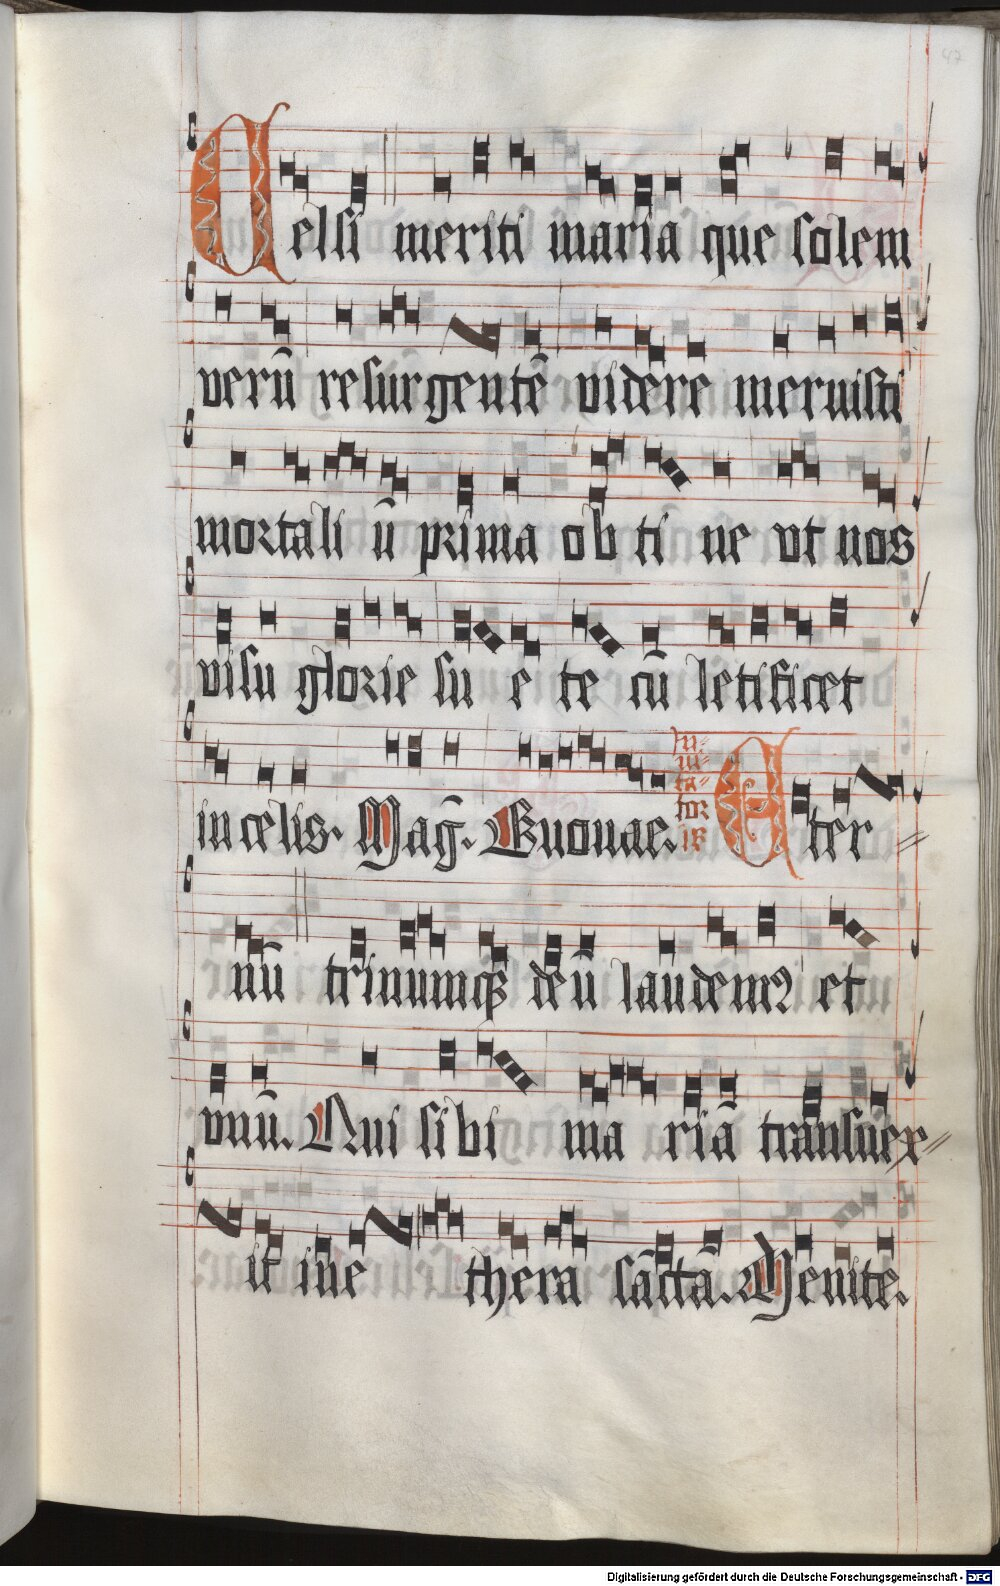 Celsi meriti maria que solem
verū resurgentē videre meruisti
mortali ū prima ob ti ne vt nos
visu glorie su e te cū letificet
in celis. Mag̅. Euouae. In ui ta tor iū Eter
nū trinumqꝫ deū laudem⁹ et
vnū. Qui sibi ma riā transuex
it in e thera sāctā. Venite.
47
Digitalisierung gefördert durch die Deutsche Forschungsgemeinschaft - DFG